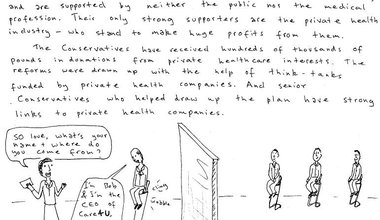 and are supported by neither the public nor the medical
profession. Their only strong supporters are the private health
industry - who stand to make huge profits from them.
The Conservatives have received hundreds of thousands of
pounds in donations from private healthcare interests. The
reforms were drawn up with the help of think-tanks
funded by private health companies. And senior
Conservatives who helped draw up the plan have strong
links to private health companies.
SO love, what's your
name + where do
you come from?
I'm Bob
& I'm the
CEO of
Care4U,
cling
wobble